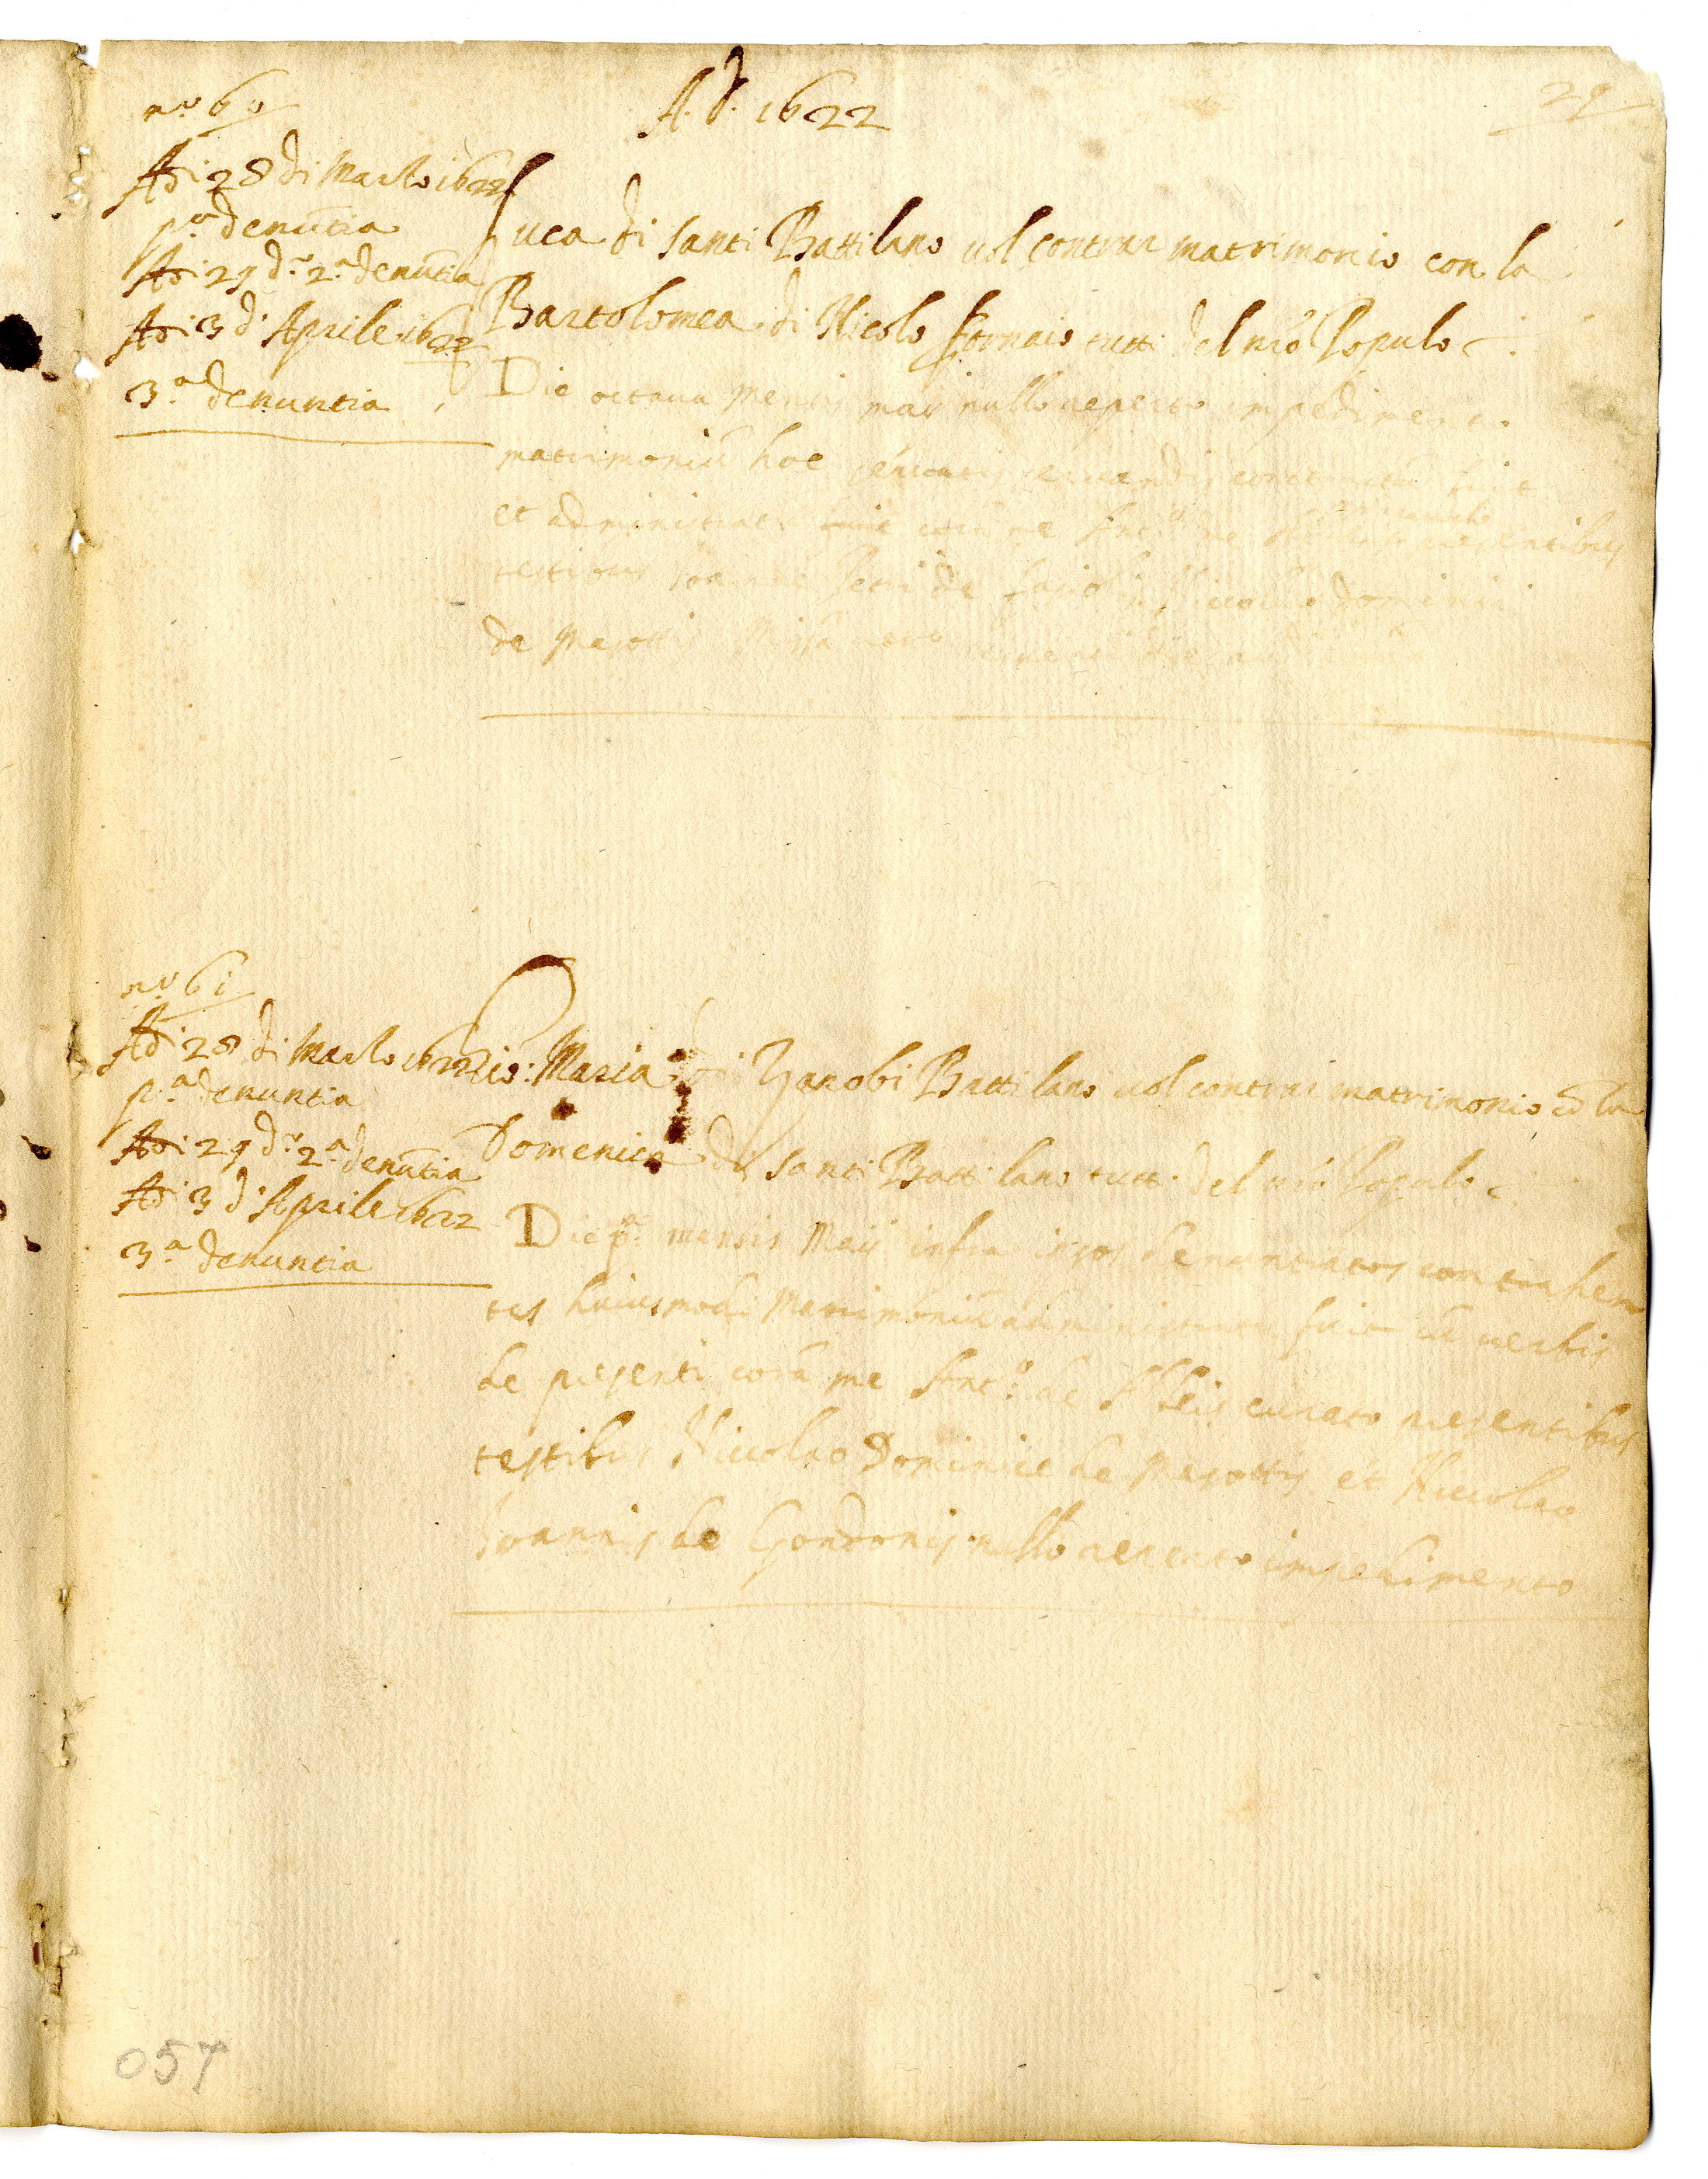 A. d. 1622
29
n.o 60
Adi 28 di Marzo 1622
p.a denūtia
Adi 29 d.o 2.a denūtia
Adi 3 d'Aprile 1622
3.a denuntia
Luca di Santi Battilano uol contrar matrimonio con la
Bartolomea di Nicolo fornaio tutti del nrō Populo
Die octaua mensis maij nullo reperto impedimento
matrimoniū hoc seruatis seruandis contractū fuit
et administratū corā me Ant.o de presentibus
testibus Joanne Petri de Niccolao Dominici
de Masottis Missa
n.o 61
Adi 28 di Marzo 1622
p.a denuntia
Adi 29 d.o 2.a denūtia
Adi 3 d'Aprile 1622
3.a denuntia
Gio: Maria di Jacobi Battilano uol contrar matrimonio cō la
Domenica di Santi Battilano tutti del nrō Populo
Die p.a mensis Maij infra ipsos denuntiatos contrahen
tes huiusmodi Matrimoniū administratū fuit cū uerbis
de presenti corā me Ant.o de curato presentibus
testibus Niccolao Dominici de Masottis et Niccolao
Joannis de Gondonis nullo reperto impedimento
057